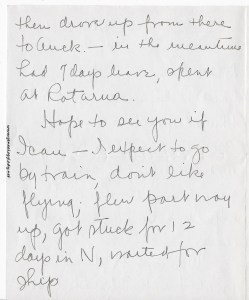 then drove up from there
to Auck. — in the meantime
had 7 days leave, spent
at Rotarua.
Hope to see you if
I can — I expect to go
by train, don't like
flying. flew part way
up, got stuck for 12
days in N, waited for
ship